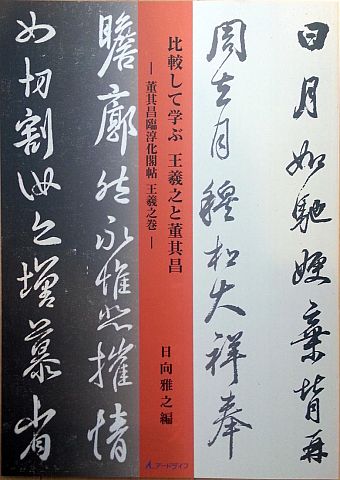 日月如馳嫂棄背再
周去月穆松大祥奉
比較して学ぶ 王羲之と董其昌
― 董其昌臨淳化閣帖 王羲之巻 ―
日向雅之編
アートライフ
瞻廓然永惟悲摧情
如切割汝亦增慕省